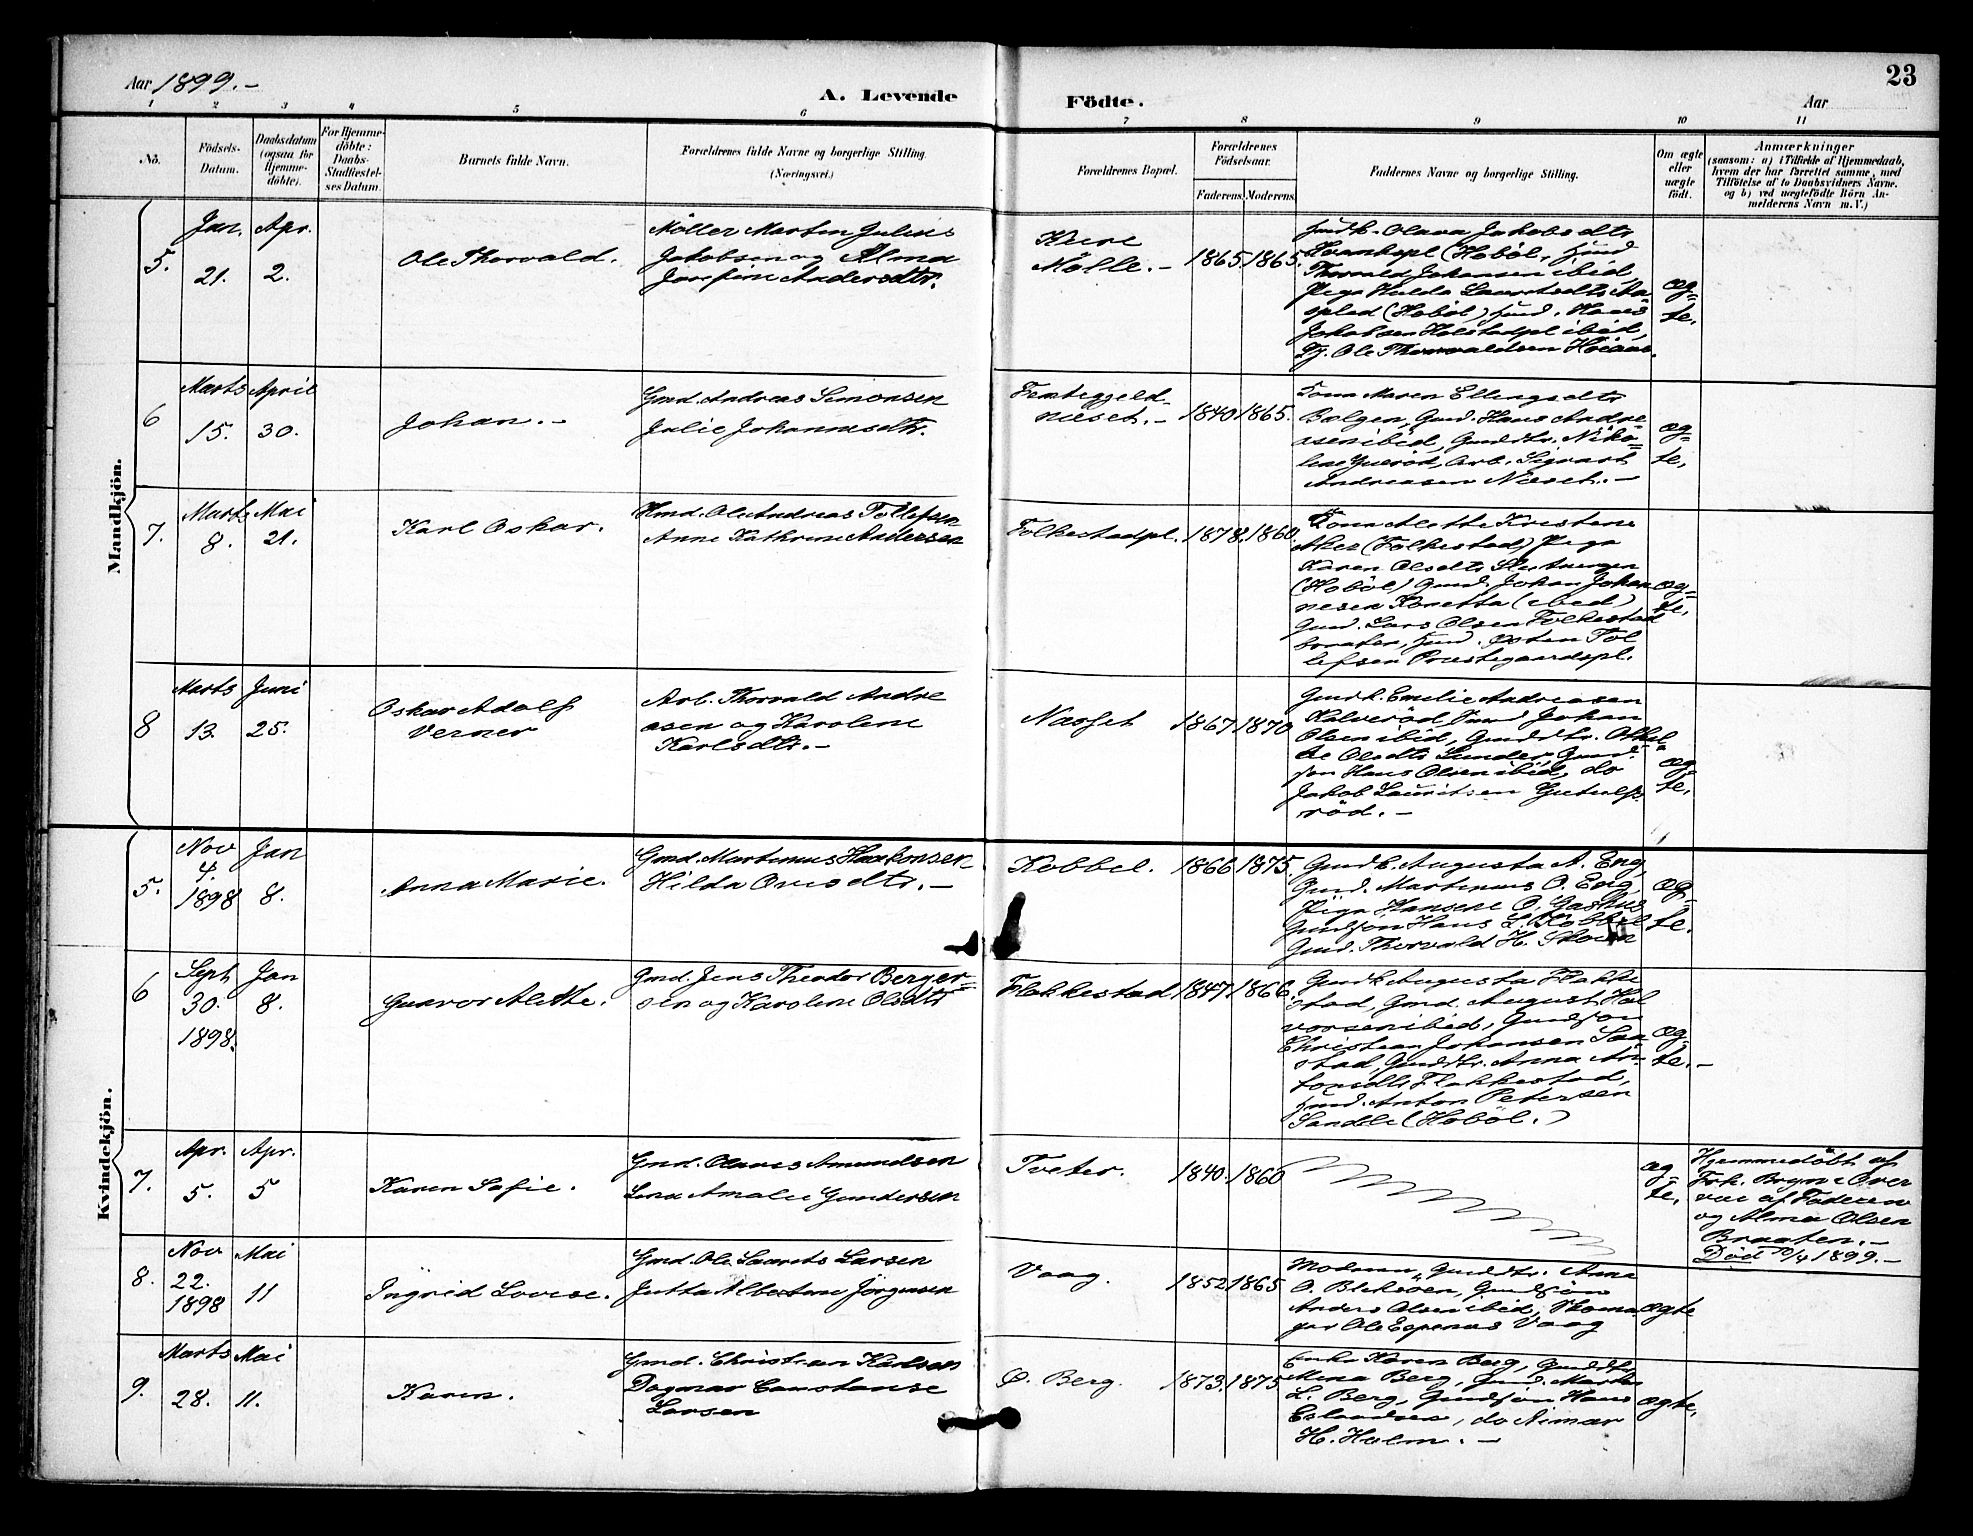 Aar 1899.-
A. Levende
Födte.
Aar
23
1 2 3 4 5 6 7 8 9 10 11
No.
Födsels-
Datum.
Daabsdatum
(ogsaa for
Hjemme-
döbte).
For Hjemme-
döbte:
Daabs-
Stadfæstel-
ses Datum.
Barnets fulde Navn.
Forældrenes fulde Navne og borgerlige Stilling.
(Næringsvei.)
Forældrenes Bopæl.
Forældrenes
Födselsaar.
Faderens. Moderens.
Faddernes Navne og borgerlige Stilling.
Om ægte
eller
uægte
födt.
Anmærkninger
(saasom: a) i Tilfælde af Hjemmedaab,
hvem der har forrettet samme, med
Tilföielse af to Daabsvidners Navne.
og b) ved uægtefödte Börn An-
melderens Navn m. V.)
Mandkjön.
5.
Jan.
21.
Apr.
2.
Ole Thorvald.
Möller Martin Julius
Jakobsen og Alma
Josefine Andersdtr.
Kure
Mölle.-
1865. 1865.
Gmdk. Olava Jakobsdtr
(Hoböl, Gmd
Thorvald Johansen ibid,
Pige Hulda Lauritsdtr
(Hoböl) Gmd. Hans
Jakobsen Holstadpl ibid,
Tj. Ole Thorvaldsen
æg=
te.
6
Marts
15.
April
30.
Johan.-
Gmd. Andreas Simonsen
Julie Johannesdtr.
næset.-
1840. 1865.
Kona Maren Ellingsdtr
Bolgen, Gmd. Hans Andre-
asen ibid, Gmddtr. Niko=
line Arb. Sigvart
Andreasen Næset.-
æg=
te,
7.
Marts
8.
Mai
21.
Karl Oskar.
Hmd. Ole Andreas Tollefsen
Anne Kathrine Andersen
Folkestadpl.
1878. 1860.
Kona Alette Kristine
Aker (Folkestad) Pige
Karen Olsdtr
(Hoböl) Gmd. Johan Johan
nesen Konetta (ibid)
Gmd. Lars Olsen Folkestad
Hmd. Osten Tol
lefsen Præstegaardspl.
æg=
te,
8
Marts
13.
Juni
25.
Oskar Adolf
Verner
Arb. Thorvald Andre
asen og Karoline
Karlsdtr.-
Næsset
1867. 1870
Gmdk. Emilie Andreasen
Kalveröd, Gmd Johan
Olsen ibid, Gmddtr.
Olsdtr Sunder, Gmd.
søn Hans Olsen ibid, do
Jakob Lauritsen
röd.-
æg
te,
Kvindekjön.
5.
Nov
4.
1898
Jan
8.
Anna Marie.
Gmd. Martinius Haakonsen
Hilda Ovesdtr.-
Kobbel.
1866 1875.
Gmdk. Augusta A. Eng,
Gmd. Martinius O. Eng,
Pige Hansine O.
Gmdsøn Hans L. Kobbel
Gmd. Thorvald H. Skoven
æg-
te.
6
Sept
30.
1898.
Jan
8.
Gunvor Alette.
Gmd. Jens Theodor Berger=
sen og Karoline Olsdtr
Flakkestad
1847. 1866.
Gmdk Augusta Flakke
stad, Gmd. August Hal
vorsen ibid, Gmdsøn
Christian Johansen Saa
stad, Gmddtr. Anna An-
tonsdtr Flakkestad,
Gmd. Anton Petersen
Sandli (Hoböl.)
æg-
te.-
7.
Apr.
5.
Apr.
5
Karen Sofie.
Gmd. Olaves Amundsen
Lina Amalie Gundersen
Tveter.
1840. 1860
æg=
te,
Hjemmedöbt af
Frk. Bryne Over
vær af Faderen
og Alma Olsen
Braaten.-
Död 10/4 1899.-
8.
Nov
22.
1898
Mai
11
Ingrid Lovise.
Gmd. Ole Laurits Larsen
Jutta Albertine Jörgensen
Vaag.
1852. 1865
Moderen, Gmddtr. Anna
O. Gmdsøn
Anders Olsen ibid,
Ole Espenæs Vaag
ægte
9.
Marts
28.
Mai
11.
Karen.
Gmd. Christian Karlsen
Dagmar Constanse
Larsen
Ö. Berg.
1873. 1875
Enke Karen Berg, Gmddtr
Mina Berg, Gmd. Martin
L. Berg, Gmdsøn Hans
do Aimar
H. Holm.-
ægte,